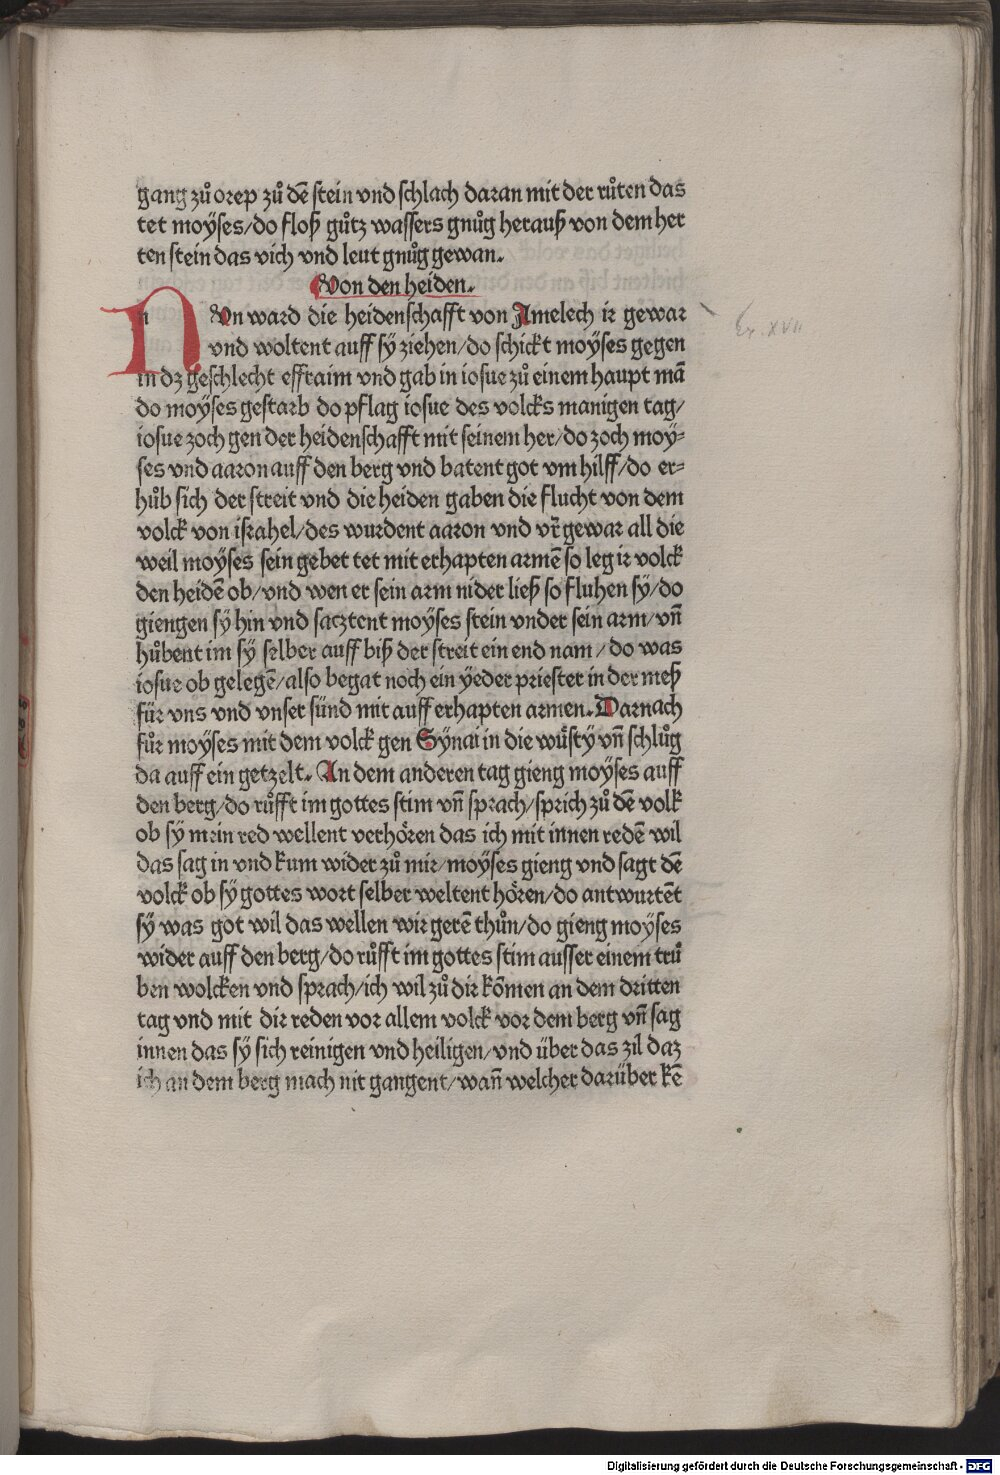 gang zuͦ orep zuͦ dē stein vnd schlach daran mit der ruͦten das
tet moÿses/do floß guͦtz wassers gnuͦg herauß von dem her
ten stein das vich vnd leut gnuͦg gewan.
Von den heiden.
NVn ward die heidenschafft von Amelech ir gewar
vnd woltent auff sÿ ziehen/do schickt moÿses gegen
in dz geschlecht effraim vnd gab in iosue zuͦ einem haupt mā
do moÿses gestarb do pflag iosue des volcks manigen tag/
iosue zoch gen der heidenschafft mit seinem her/do zoch moÿ⸗
ses vnd aaron auff den berg vnd batent got vm hilff/do er⸗
huͦb sich der streit vnd die heiden gaben die flucht von dem
volck von israhel/des wurdent aaron vnd vr̄ gewar all die
weil moÿses sein gebet tet mit erhapten armē so leg ir volck
den heidē ob/vnd wen er sein arm nider ließ so fluhen sÿ/do
giengen sÿ hin vnd sacztent moÿses stein vnder sein arm/vn̄
huͦbent im sÿ selber auff biß der streit ein end nam/do was
iosue ob gelegē/also begat noch ein ÿeder priester in der meß
für vns vnd vnser sünd mit auff erhapten armen. Darnach
fuͦr moÿses mit dem volck gen Sÿnai in die wuͤsty vn̄ schluͦg
da auff ein getzelt. An dem anderen tag gieng moÿses auff
den berg/do ruͦfft im gottes stim vn̄ sprach/sprich zuͦ dē volk
ob sÿ mein red wellent verhoͤren das ich mit innen redē wil
das sag in vnd kum wider zuͦ mir/moÿses gieng vnd sagt dē
volck ob sÿ gottes wort selber weltent hoͤren/do antwurtēt
sÿ was got wil das wellen wir gerē thuͦn/do gieng moÿses
wider auff den berg/do ruͦfft im gottes stim ausser einem truͤ
ben wolcken vnd sprach/ich wil zuͦ dir kōmen an dem dritten
tag vnd mit dir reden vor allem volck vor dem berg vn̄ sag
innen das sÿ sich reinigen vnd heiligen/vnd über das zil daz
ich an dem berg mach nit gangent/wan̄ welcher darüber kē
Ex. XVII
Digitalisierung gefördert durch die Deutsche Forschungsgemeinschaft - DFG